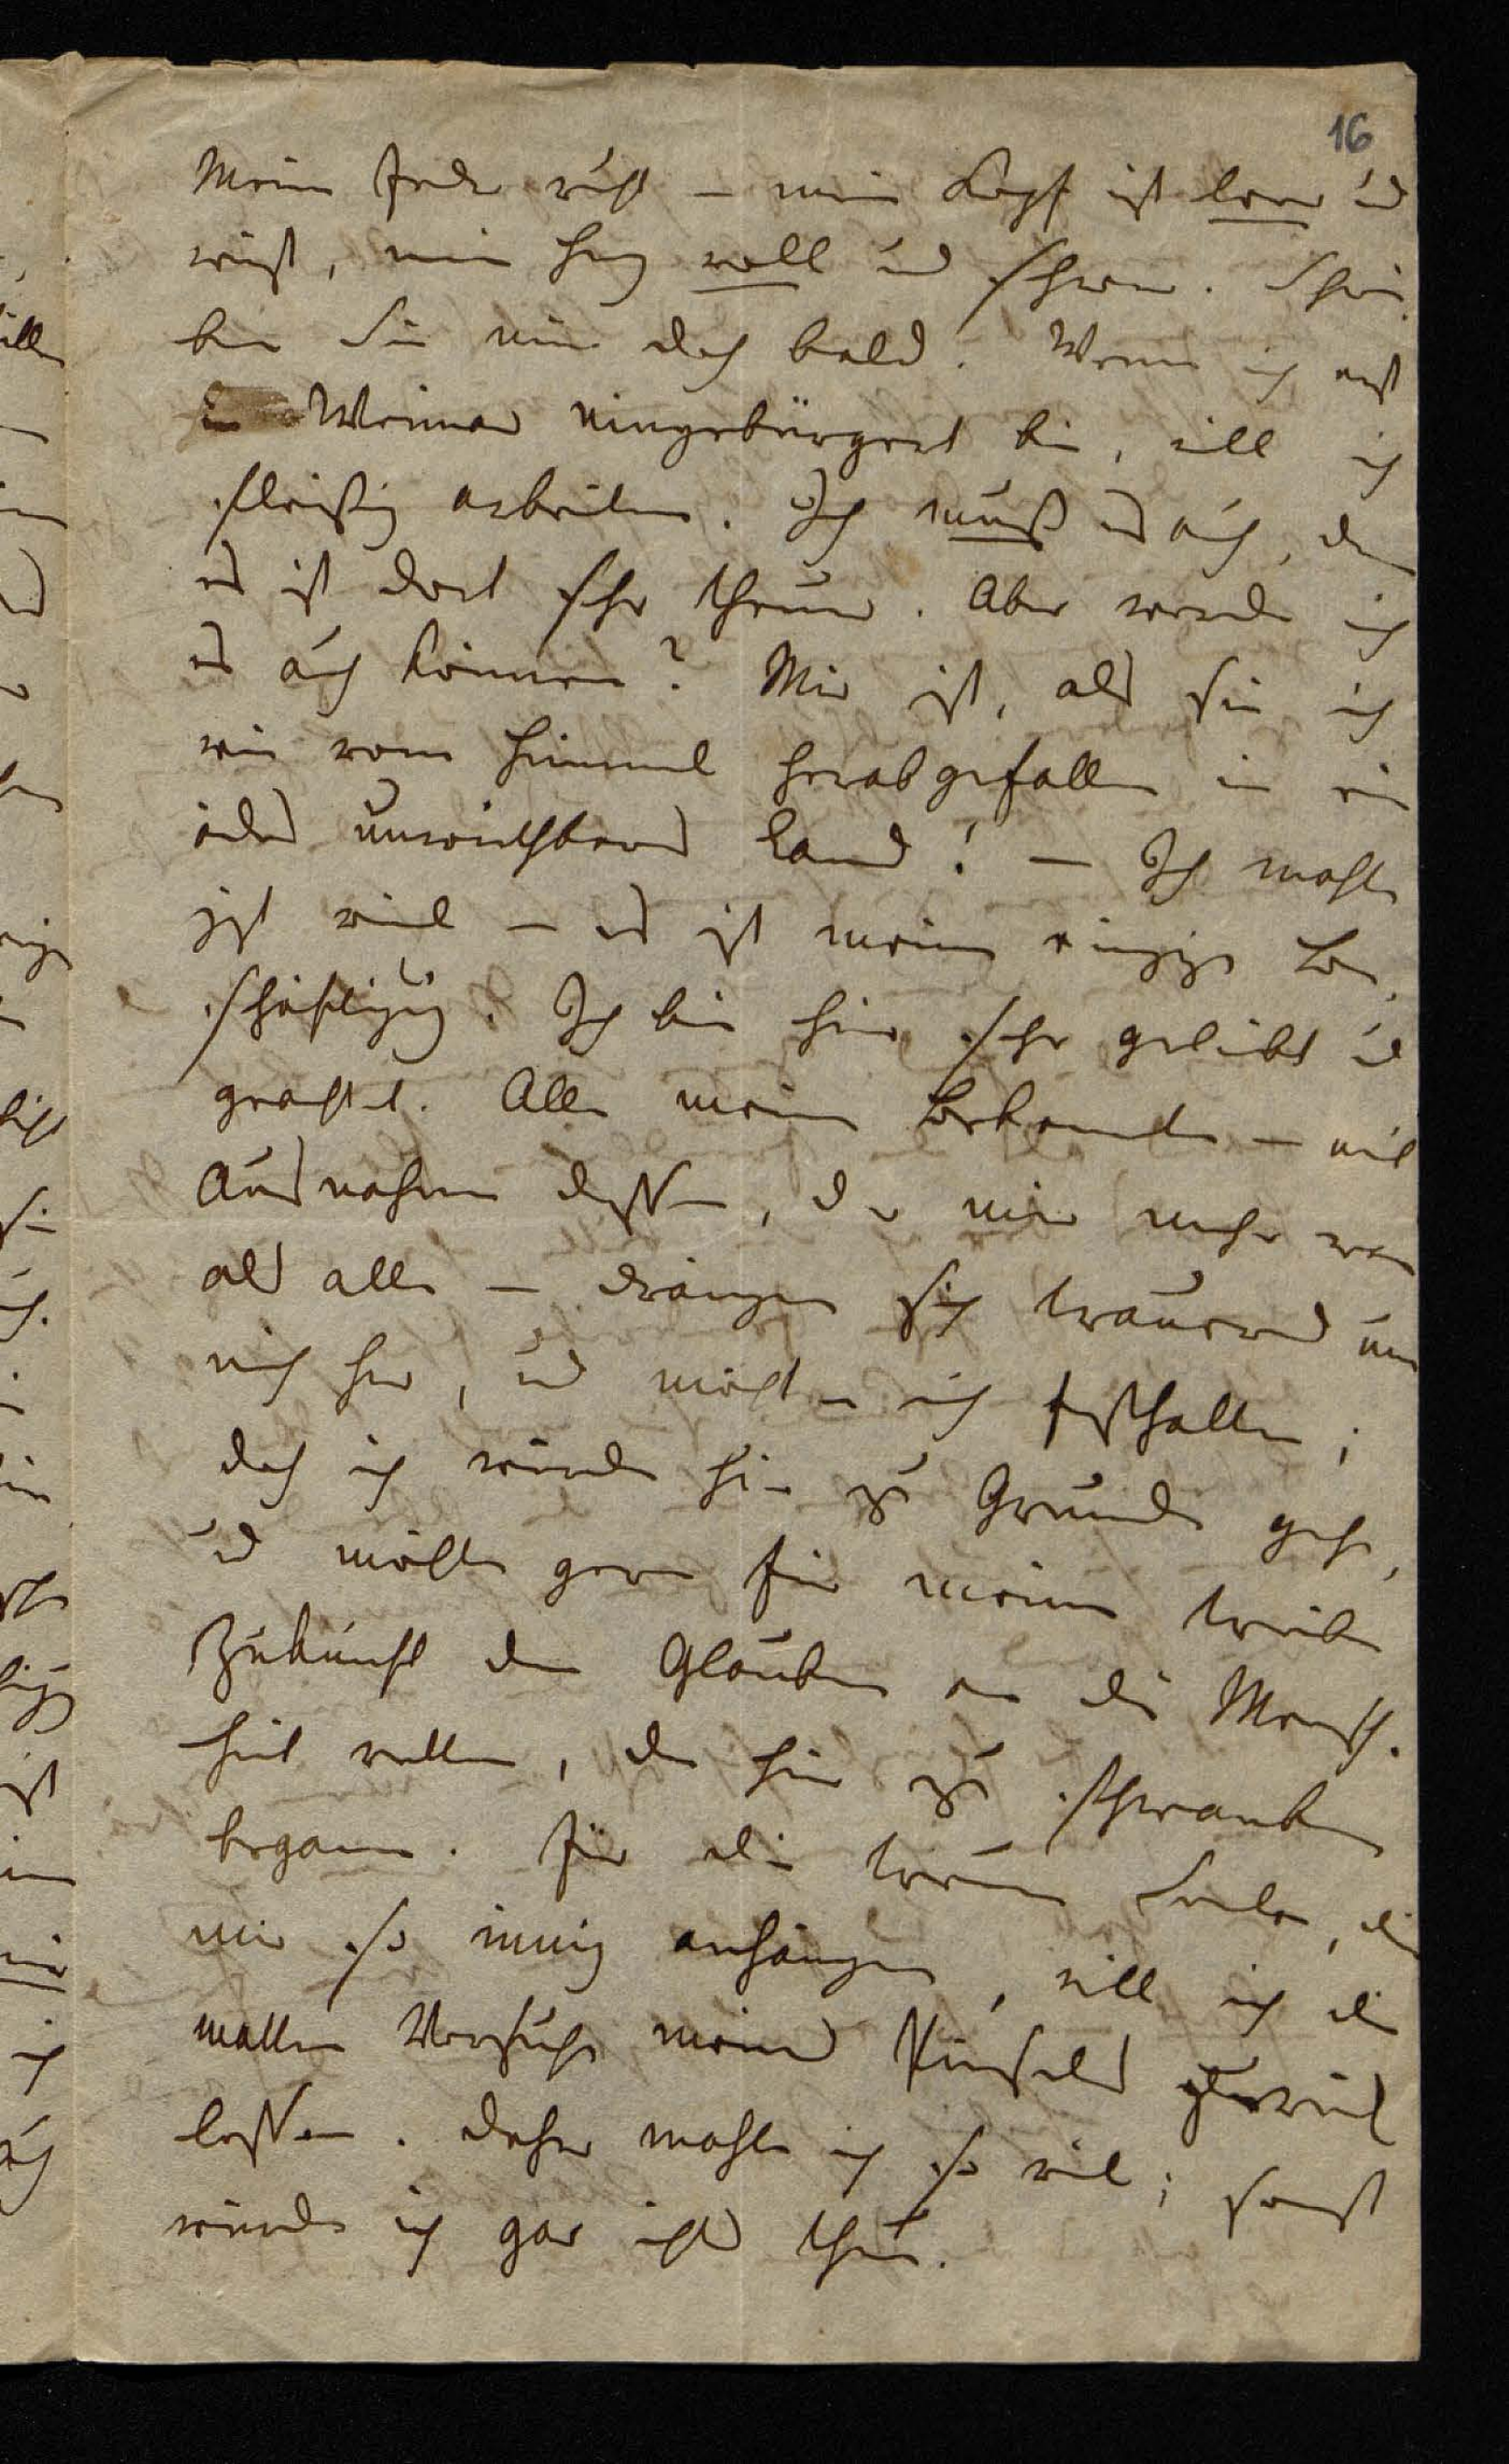 16
Meine Feder ruht – mein Kopf ist leer und
wüst, mein Herz voll und schwer. Schrei-
ben Sie mir doch bald. Wenn ich erst
in Weimar eingebürgert bin, will ich
fleißig arbeiten. Ich muß es auch, denn
es ist dort sehr theuer. Aber werde ich
es auch können? Mir ist, als sei ich
wie vom Himmel herabgefallen in ein
ödes unwirthbares Land! – Ich mahle
jezt viel – es ist meine einzige Be-
schäftigung. Ich bin hier sehr geliebt und
geachtet. Alle meine Bekannte – mit
Ausnahme dessen, der mir mehr war
als alle – drängen sich trauernd um
mich her, und möchten mich festhalten;
doch ich würde hier zu Grunde gehen,
und möchte gern für meine trübe
Zukunft den Glauben an die Mensch-
heit retten, der hier zu schwanken
begann. Für die treuen Seelen, die
mir so innig anhängen, will ich die
matten Versuche meines Pinsels zurück
lassen. Daher mahle ich so viel; sonst
würde ich gar nichts thun.